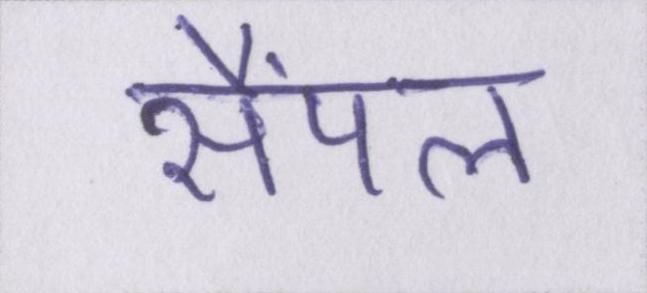 सैंपल